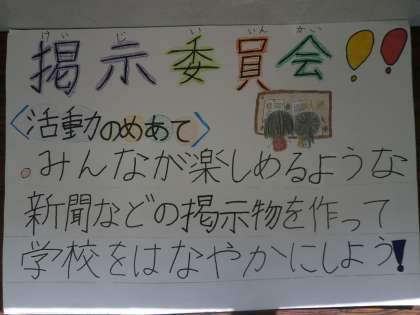 けいじいいんかい
掲示委員会!!
〈活動のめあて〉
・みんなが楽しめるような
新聞などの掲示物を作って
学校をはなやかにしよう!